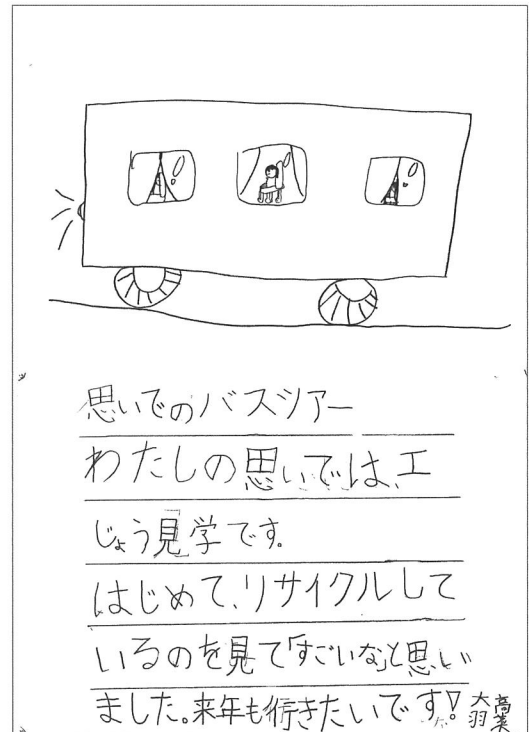 思いでのバスツアー
わたしの思いでは、工
じょう見学です。
はじめて、リサイクルして
いるのを見て「すごいな」と思い
ました。来年も行きたいです!